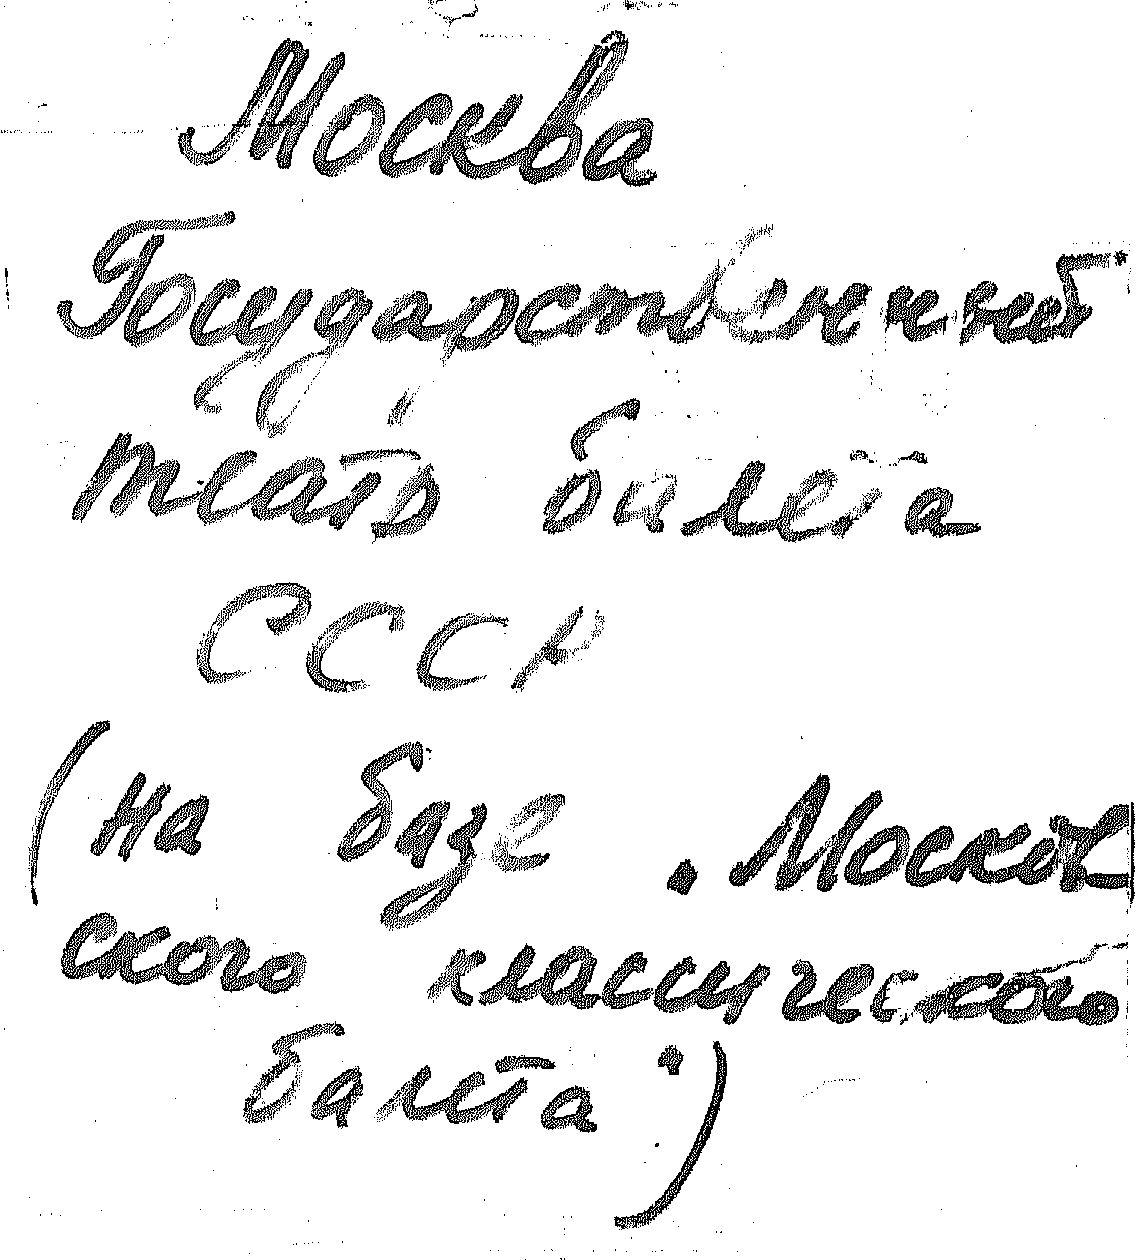 Москва
Государственный
театр балета
СССР
(на базе „Москов
ского классического
балета")